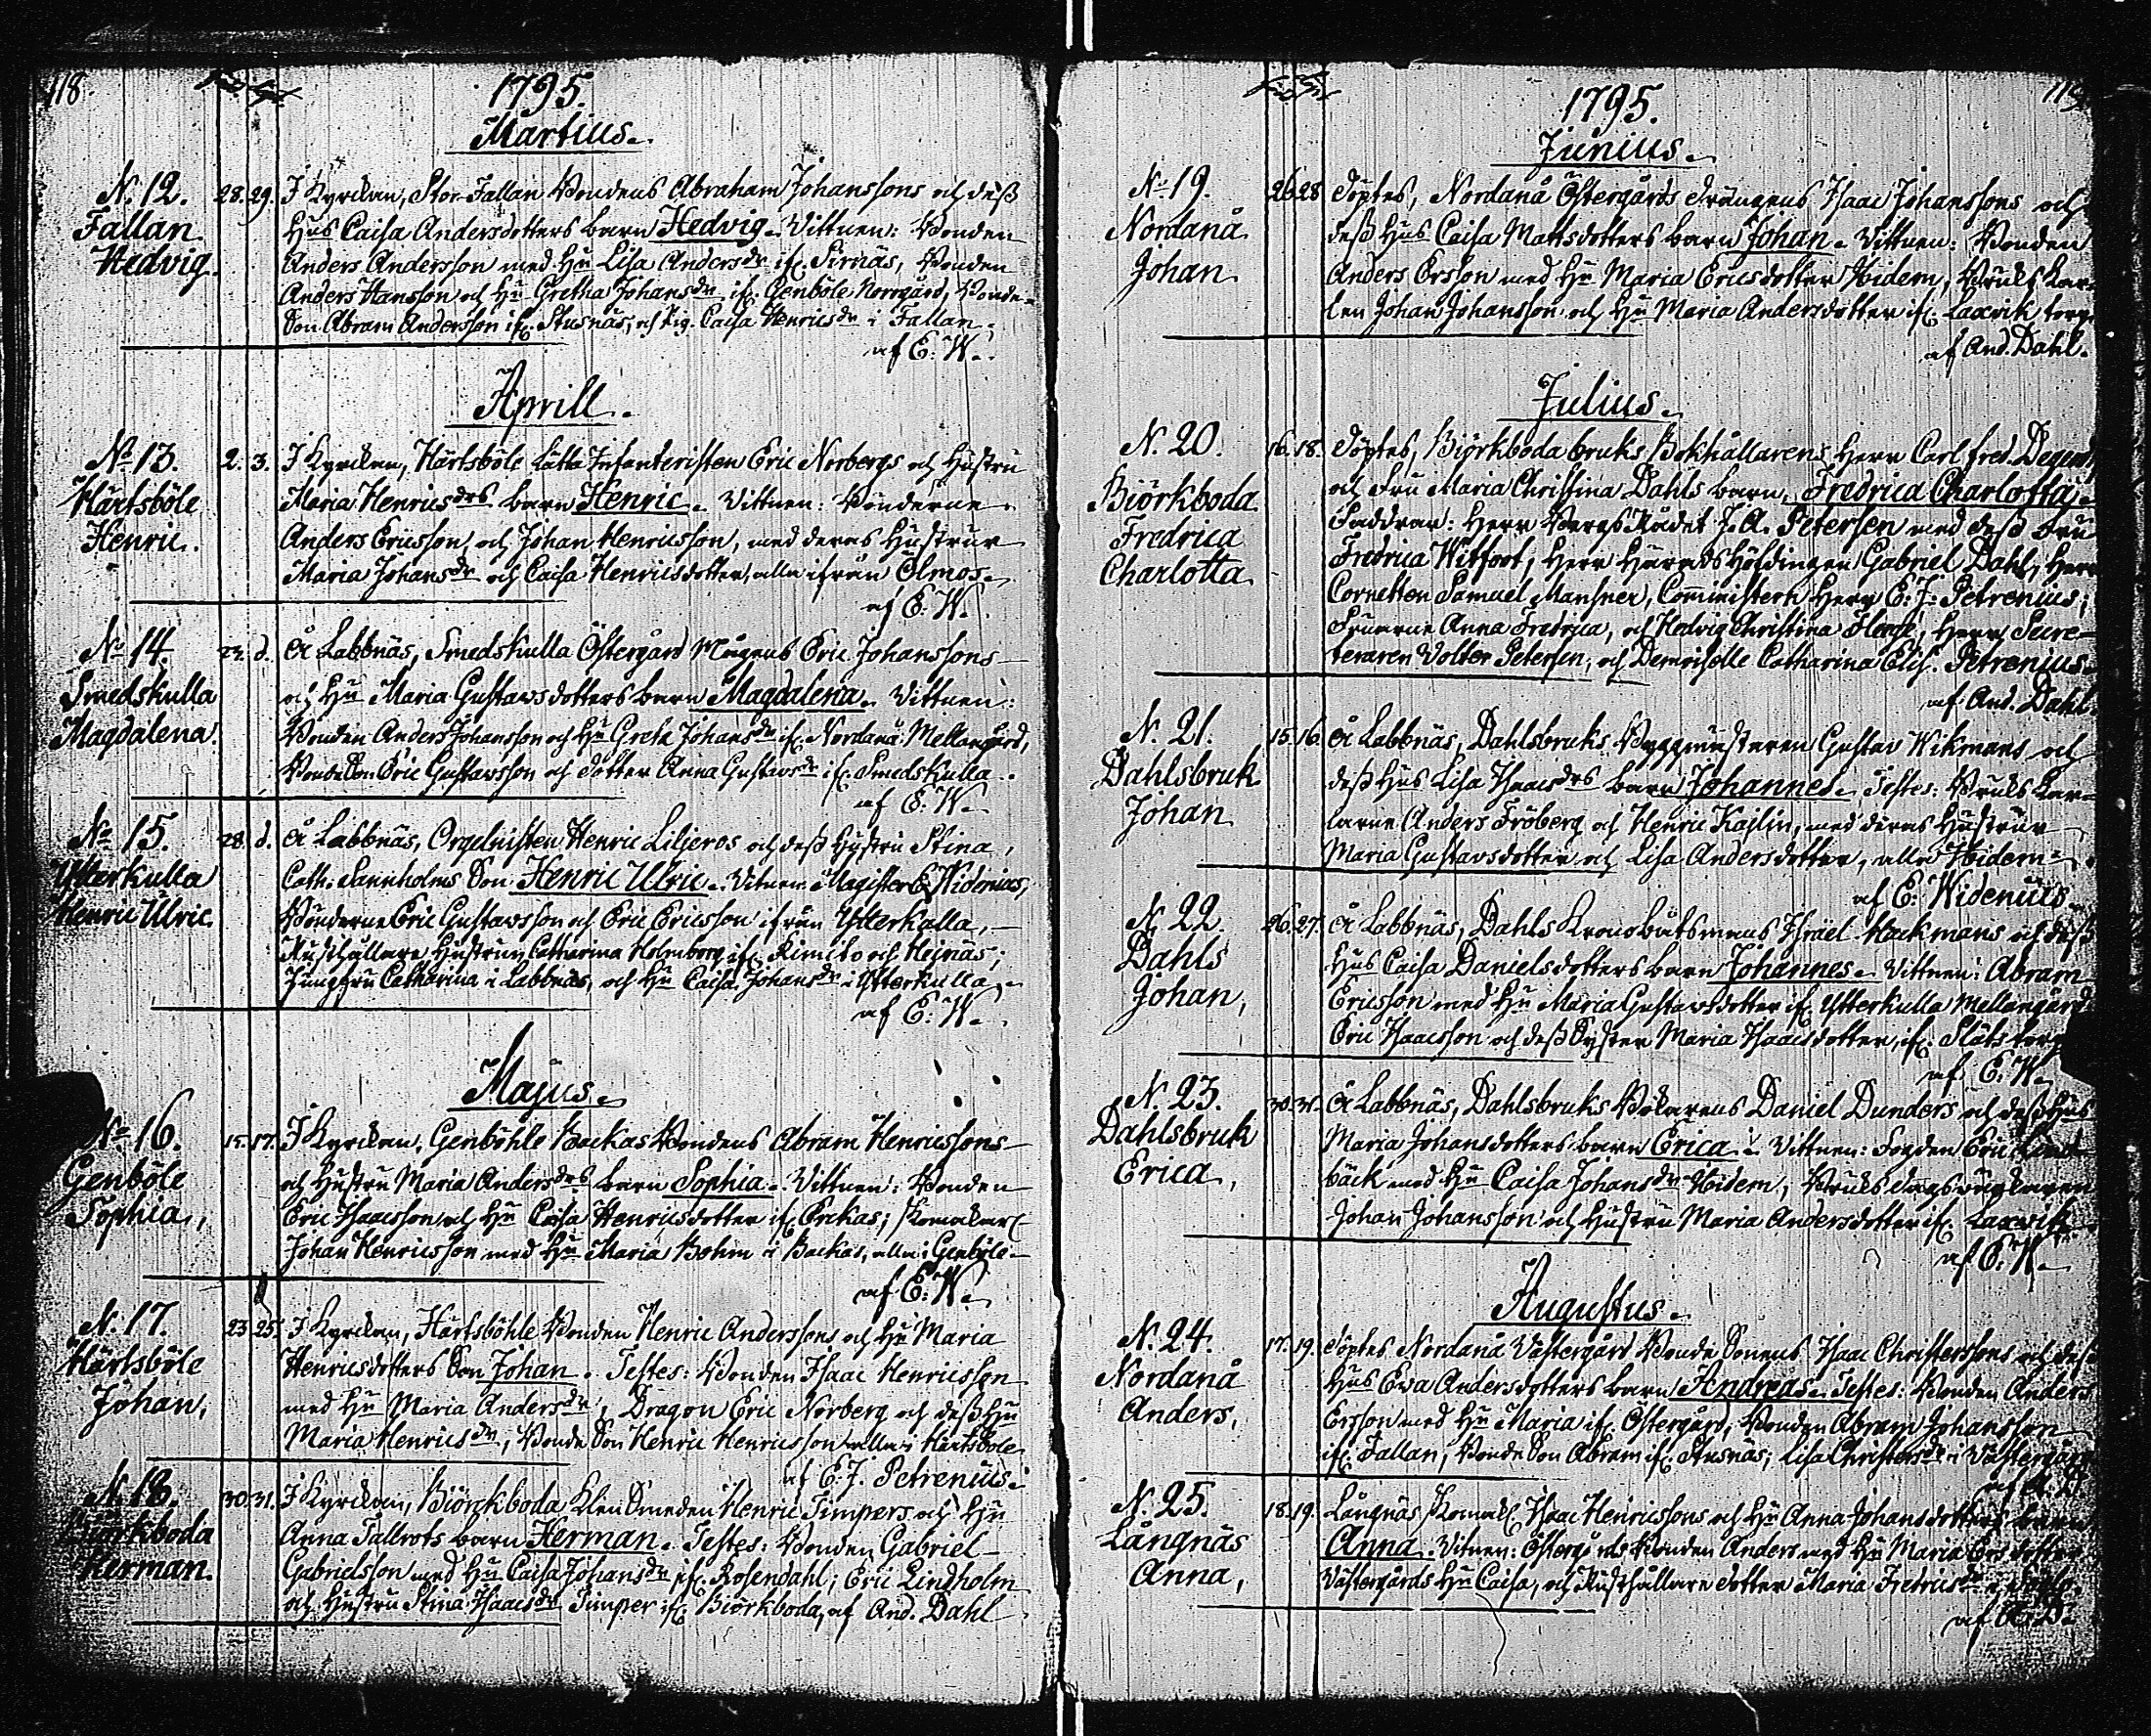 118
1795.
Martius.
N. 12.
Fallan
Hedvig.
28. 29. I Kyrckan, Stor-Fallan Bondens Abraham Johanssons och dess
Hus Caisa Andersdotters barn Hedvig. Vittnen: Bonden
Anders Andersson med Hu Lisa Andersdr if. Sirnäs, Bonden
Anders Hansson och Hu Gretha Johansdr if. Genböle Norrgård, Bonde-
Son Abram Andersson if. Stusnäs, och Pig. Caisa Henricsdr i Fallan.
af E: W.
Aprill.
No 13.
Härtsböle
Henric.
2. 3. I Kyrckan, Härtsböle Lätta Infanteristen Eric Norbergs och Hustru
Maria Henricsdrs barn Henric. Vittnen: Bönderne
Anders Ericsson och Johan Henricsson, med deras Hustrur
Maria Johansdr och Caisa Henricsdotter, alla ifrån Ölmos.
af E: W.
No 14.
Smedskulla
Magdalena.
22. d. Å Labbnäs, Smedskulla Östergård Mågens Eric Johanssons
och Hu Maria Gustavsdotters barn Magdalena. Vittnen:
Bonden Anders Johansson och Hu Greta Johansdr if. Nordanå Mellangård,
Bonde Son Eric Gustavsson och dotter Anna Gustavsdr if. Smedskulla.
af E: W.
No 15.
Ytterkulla
Henric Ulric.
28. d. Å Labbnäs, Orgelnisten Henric Liljeros och dess Hustru Stina
Cath. Sannholms Son Henric Ulric. Vitnen Magister E. Widenius,
Bönderne Eric Gustavsson och Eric Ericsson ifrån Ytterkulla,
Rusthållare Hustrun Catharina Holmberg if. Kimito och Hejnäs;
Jungfru Catharina i Labbnäs, och Hu Caisa Johansdr i Ytterkulla.
af E: W.
Majus.
No 16.
Genböle
Sophia,
15. 17. I Kyrckan, Genböhle Backas Bondens Abram Henricssons
och Hustru Maria Andersdrs barn Sophia. Vittnen: Bonden
Eric Isaacsson och Hu Caisa Henricsdotter if. Backas; Skomakar
Johan Henricsson med Hu Maria Bohm i Backas, alla i Genböle
af E: W.
N. 17.
Härtsböle
Johan,
23. 25. I Kyrckan, Härtsböhle Bonden Henric Anderssons och Hu Maria
Henricsdotters Son Johan. Testes: Bonden Isaac Henricsson
med Hu Maria Andersdr, Dragon Eric Norberg och dess Hu
Maria Henricsdr, Bonde Son Henric Henricsson alla i Härtsböle
af E: J. Petrenius.
N. 18.
Biörkboda
Herman.
30. 31. I Kyrckan, Biörckboda Klensmeden Henric Timpers och Hu
Anna Tallrots barn Herman. Testes: Bonden Gabriel
Gabrielsson med Hu Caisa Johansdr if. Rosendahl; Eric Lindholm
och Hustru Stina Isaacsdr Timper if. Biörkboda, af And. Dahl
1795.
Junius.
No 19.
Nordanå
Johan
26. 28 Döptes, Nordanå Östergårds drängens Isaac Johanssons och
dess Hus Caisa Mattsdotters barn Johan. Vittnen: Bonden
Anders Ersson med Hu Maria Ericsdotter Ibidem, Bruks Kar-
len Johan Johansson och Hu Maria Andersdotter if. Laxvik torp
af And. Dahl.
Julius.
N. 20.
Biörkboda
Fredrica
Charlotta
16. 18. Döptes, Biörkboda bruks Bokhållarens Herr Carl Fred.
och Fru Maria Christina Dahls barn, Fredrica Charlotta.
Faddrar: Herr BergsRådet J. A. Petersen med dess Fru
Fredrica Witfoot; Herr Häradshöfdingen Gabriel Dahl, Herr
Cornetten Samuel Mansner, Comministern Herr E: J: Petrenius;
Fruarne Anna Fredrica, och Hedvig Christina Herr Secre-
teraren Volter Petersen, och Demoiselle Catharina Elis. Petrenius
af And. Dahl.
N. 21.
Dahlsbruk
Johan
15. 16. Å Labbnäs, Dahlsbruks Byggmästeren Gustav Wikmans och
dess Hus Lisa Isaacsdrs barn Johannes. Testes: Bruks Kar-
larne Anders Fröberg och Henric Kajlin, med deras Hustrur
Maria Gustavsdotter och Lisa Andersdotter, alla Ibidem.
af E: Widenius
N. 22.
Dahls
Johan,
26. 27. Å Labbnäs, Dahls Kronobåtsmans Israel Hackmans och dess
Hus Caisa Danielsdotters barn Johannes. Vittnen: Abram
Ericsson med Hu Maria Gustavsdotter if. Ytterkulla Mellangård
Eric Isaacsson och dess Syster Maria Isaacsdotter, if. Släts torp
af E: W.
N. 23.
Dahlsbruk
Erica,
30. 31. Å Labbnäs, Dahlsbruks Bokarens Daniel Dunders och dess Hus
Maria Johansdotters barn Erica. Vittnen: Fogden Eric Lind-
bäck med Hu Caisa Johansdr Ibidem, Bruks
Johan Johansson och Hustru Maria Andersdotter if. Laxwik
af E: W.
Augustus.
N. 24.
Nordanå
Anders,
17. 19. Döptes Nordanå Västergård Bonde Sonens Isaac Christerssons och dess
Hus Ewa Andersdotters barn Andreas. Testes: Bonden Anders
Ersson med Hu Maria if. Östergård; Bonden Abram Johansson
if. Fallan, Bonde Son Abram if. Stusnäs; Lisa Christersdr i Västergård
af A. D.
N. 25.
Långnäs
Anna,
18. 19. Långnäs Skomak. Isaac Henricssons och Hu Anna Johansdotters barn
Anna. Vitnen: Östergårds Bonden Anders med Hu Maria Ersdotter
Västergårds Hu Caisa, och Rusthållare dotter Maria Fredricsdr i
af A. D.